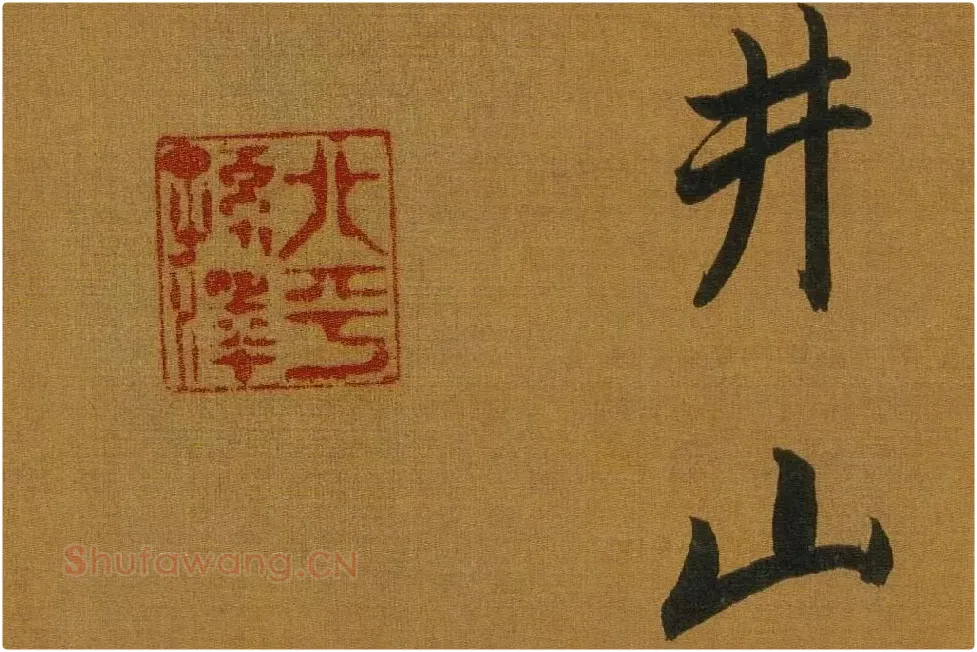 井山
北平
孫澤
Shufawang.CN